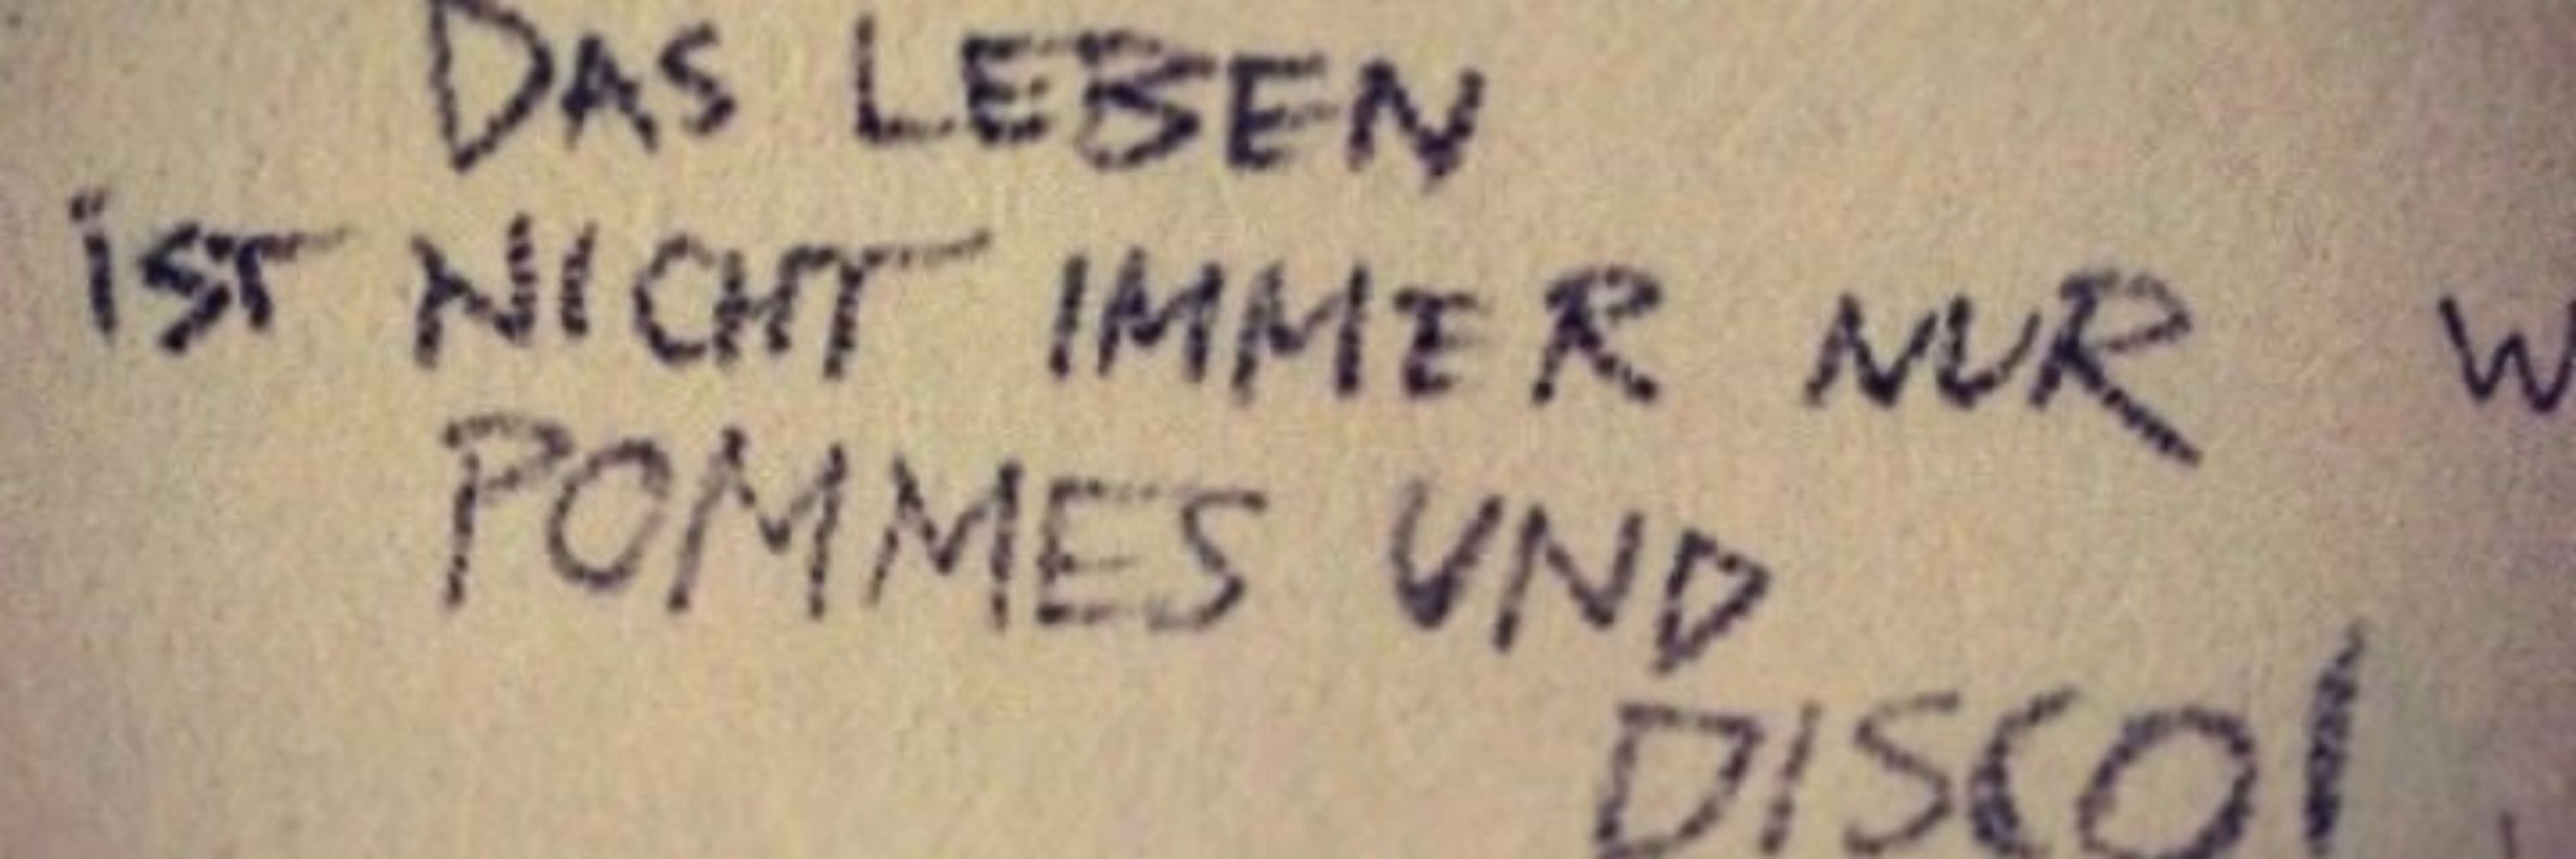 DAS LEBEN
iST NICHT IMMER NUR W
POMMES UND
DISCO!